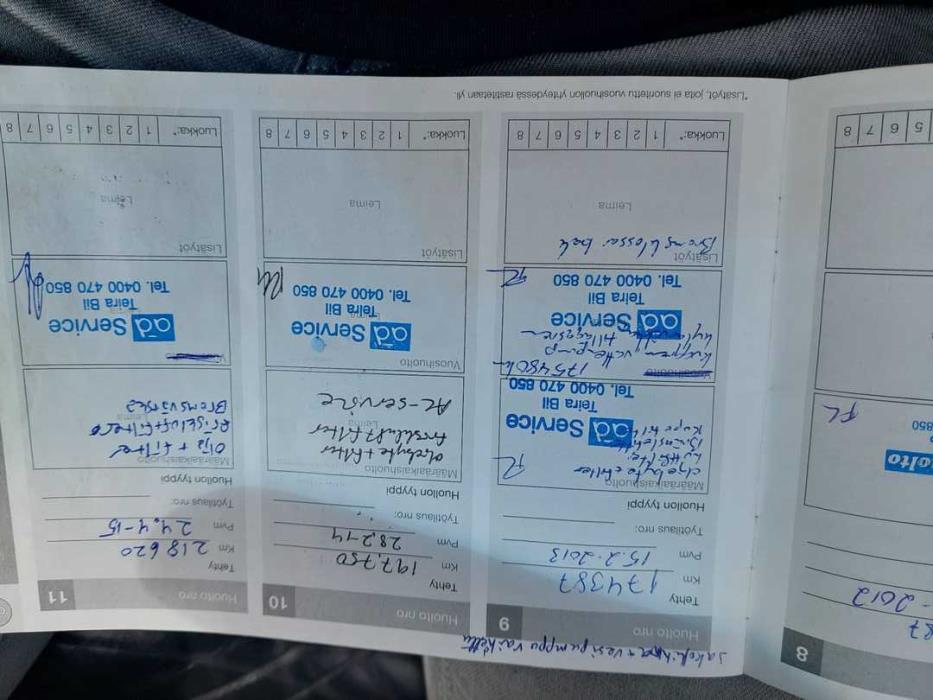 8
- 2012
FL
850
5 6 7 8
jakohihna + vesipumppu vaihdettu
Huolto nro 9
Tehty
Km 174387
Pvm 15.2-2013
Työtilaus nro:
Huollon tyyppi
Määräaikaishuolto
oljebyte + filter
Luftfilter
Bränslefilter
Kupefilter
ad Service
Teira Bil
Tel. 0400 470 850
Vuosihuolto
175480 km
vattenpump
ad Service
Teira Bil
Tel. 0400 470 850
Lisätyöt
Bromsklossar bak
Leima
Luokka:* 1 2 3 4 5 6 7 8
Huolto nro 10
Tehty
Km 197.750
Pvm 28.2-14
Työtilaus nro:
Huollon tyyppi
Määräaikaishuolto
oljebyte + filter
friskluftfilter
Leima
AC-service
Vuosihuolto
ad Service
Teira Bil
Tel. 0400 470 850
Lisätyöt
Leima
Luokka:* 1 2 3 4 5 6 7 8
Huolto nro 11
Tehty
Km 218620
Pvm 24.4-15
Työtilaus nro:
Huollon tyyppi
Määräaikaishuolto
Olja + filter
Friskluftfilter
Leima
Bromsvätska
ad Service
Teira Bil
Tel. 0400 470 850
Lisätyöt
Leima
Luokka:* 1 2 3 4 5 6 7 8
*Lisätyöt, joita ei suoritettu vuosihuollon yhteydessä rastitetaan yli.